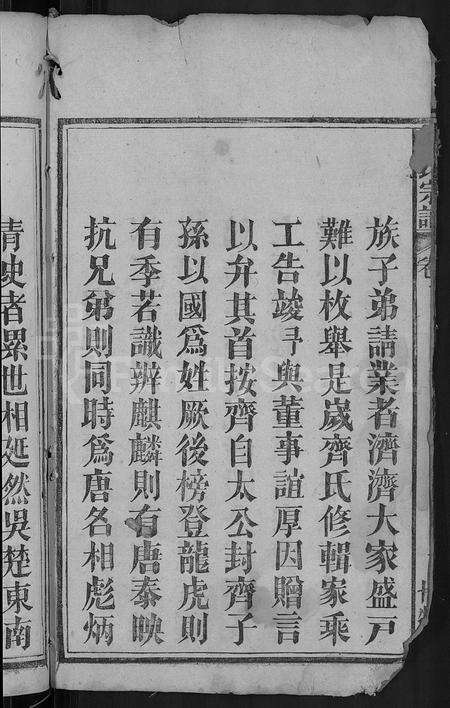 族子弟請業者濟濟大家盛戸
難以枚舉是歲齊氏修輯家乘
工告竣予與董事誼厚因贈言
以弁其首按齊自太公封齊子
孫以國爲姓厥後榜登龍虎則
有季若識辨麒麟則有唐泰映
抗兄弟則同時爲唐名相彪炳
青史者累世相延然吳楚東南
宗譜
卷